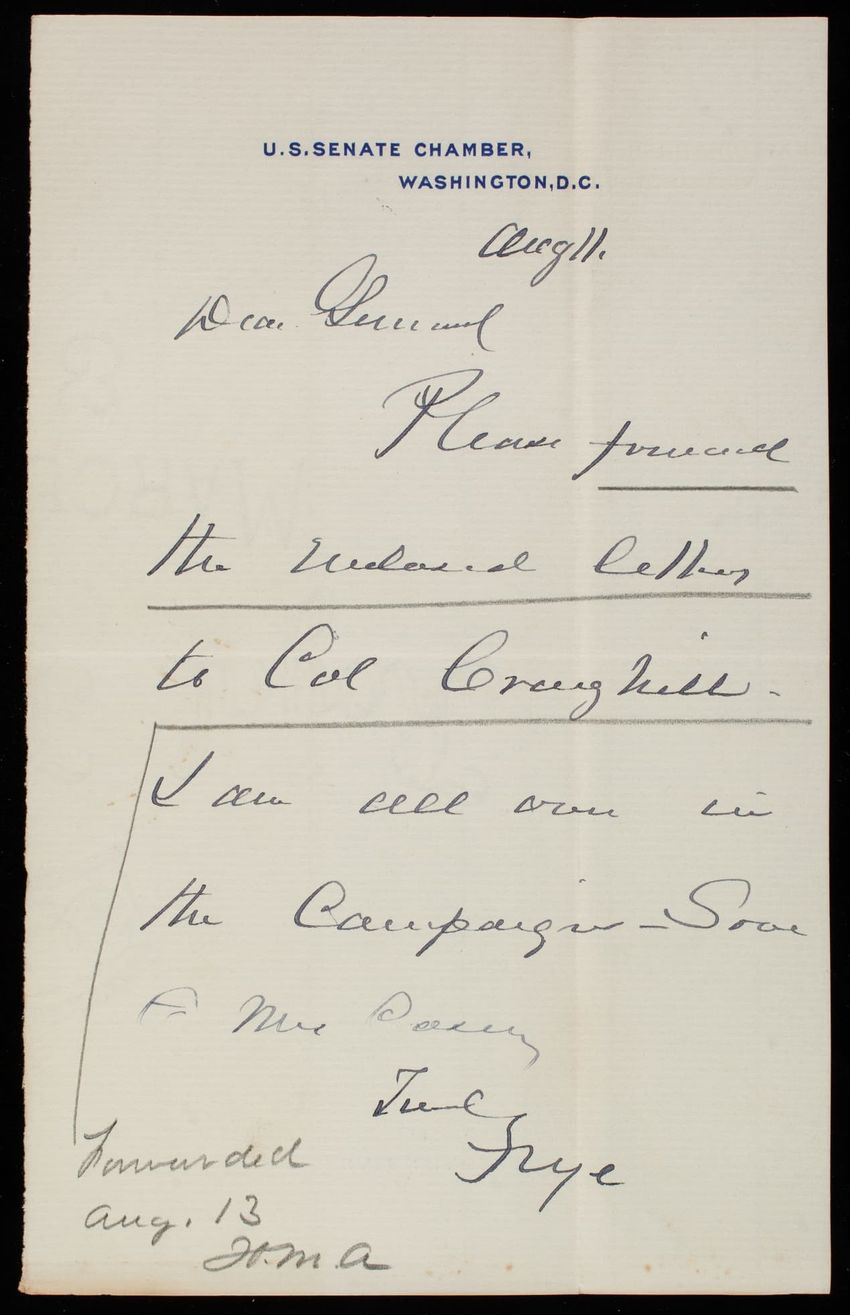 U.S. SENATE CHAMBER,
WASHINGTON, D.C.
Aug 11.
Dear General
Please forward
the enclosed letter
to Col Craighill.
I am all over in
the Campaign - Love
to Mrs Casey
Truly
Frye
Forwarded
Aug. 13
H.M.A